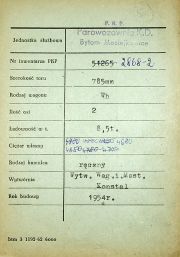 P. K. P.
Jednostka służbowa
Parowozownia K.D.
Bytom Maciejkowice
Nr inwentarza PKP 51265 2868-2
Szerokość toru 785mm
Rodzaj wagonu Wh
Ilość osi 2
Ładowność w t. 8,5t.
Ciężar własny
Rodzaj hamulca ręczny
Wytwórnia Wytw. Wag. i Most.
Konstal
Rok budowy 1954r.